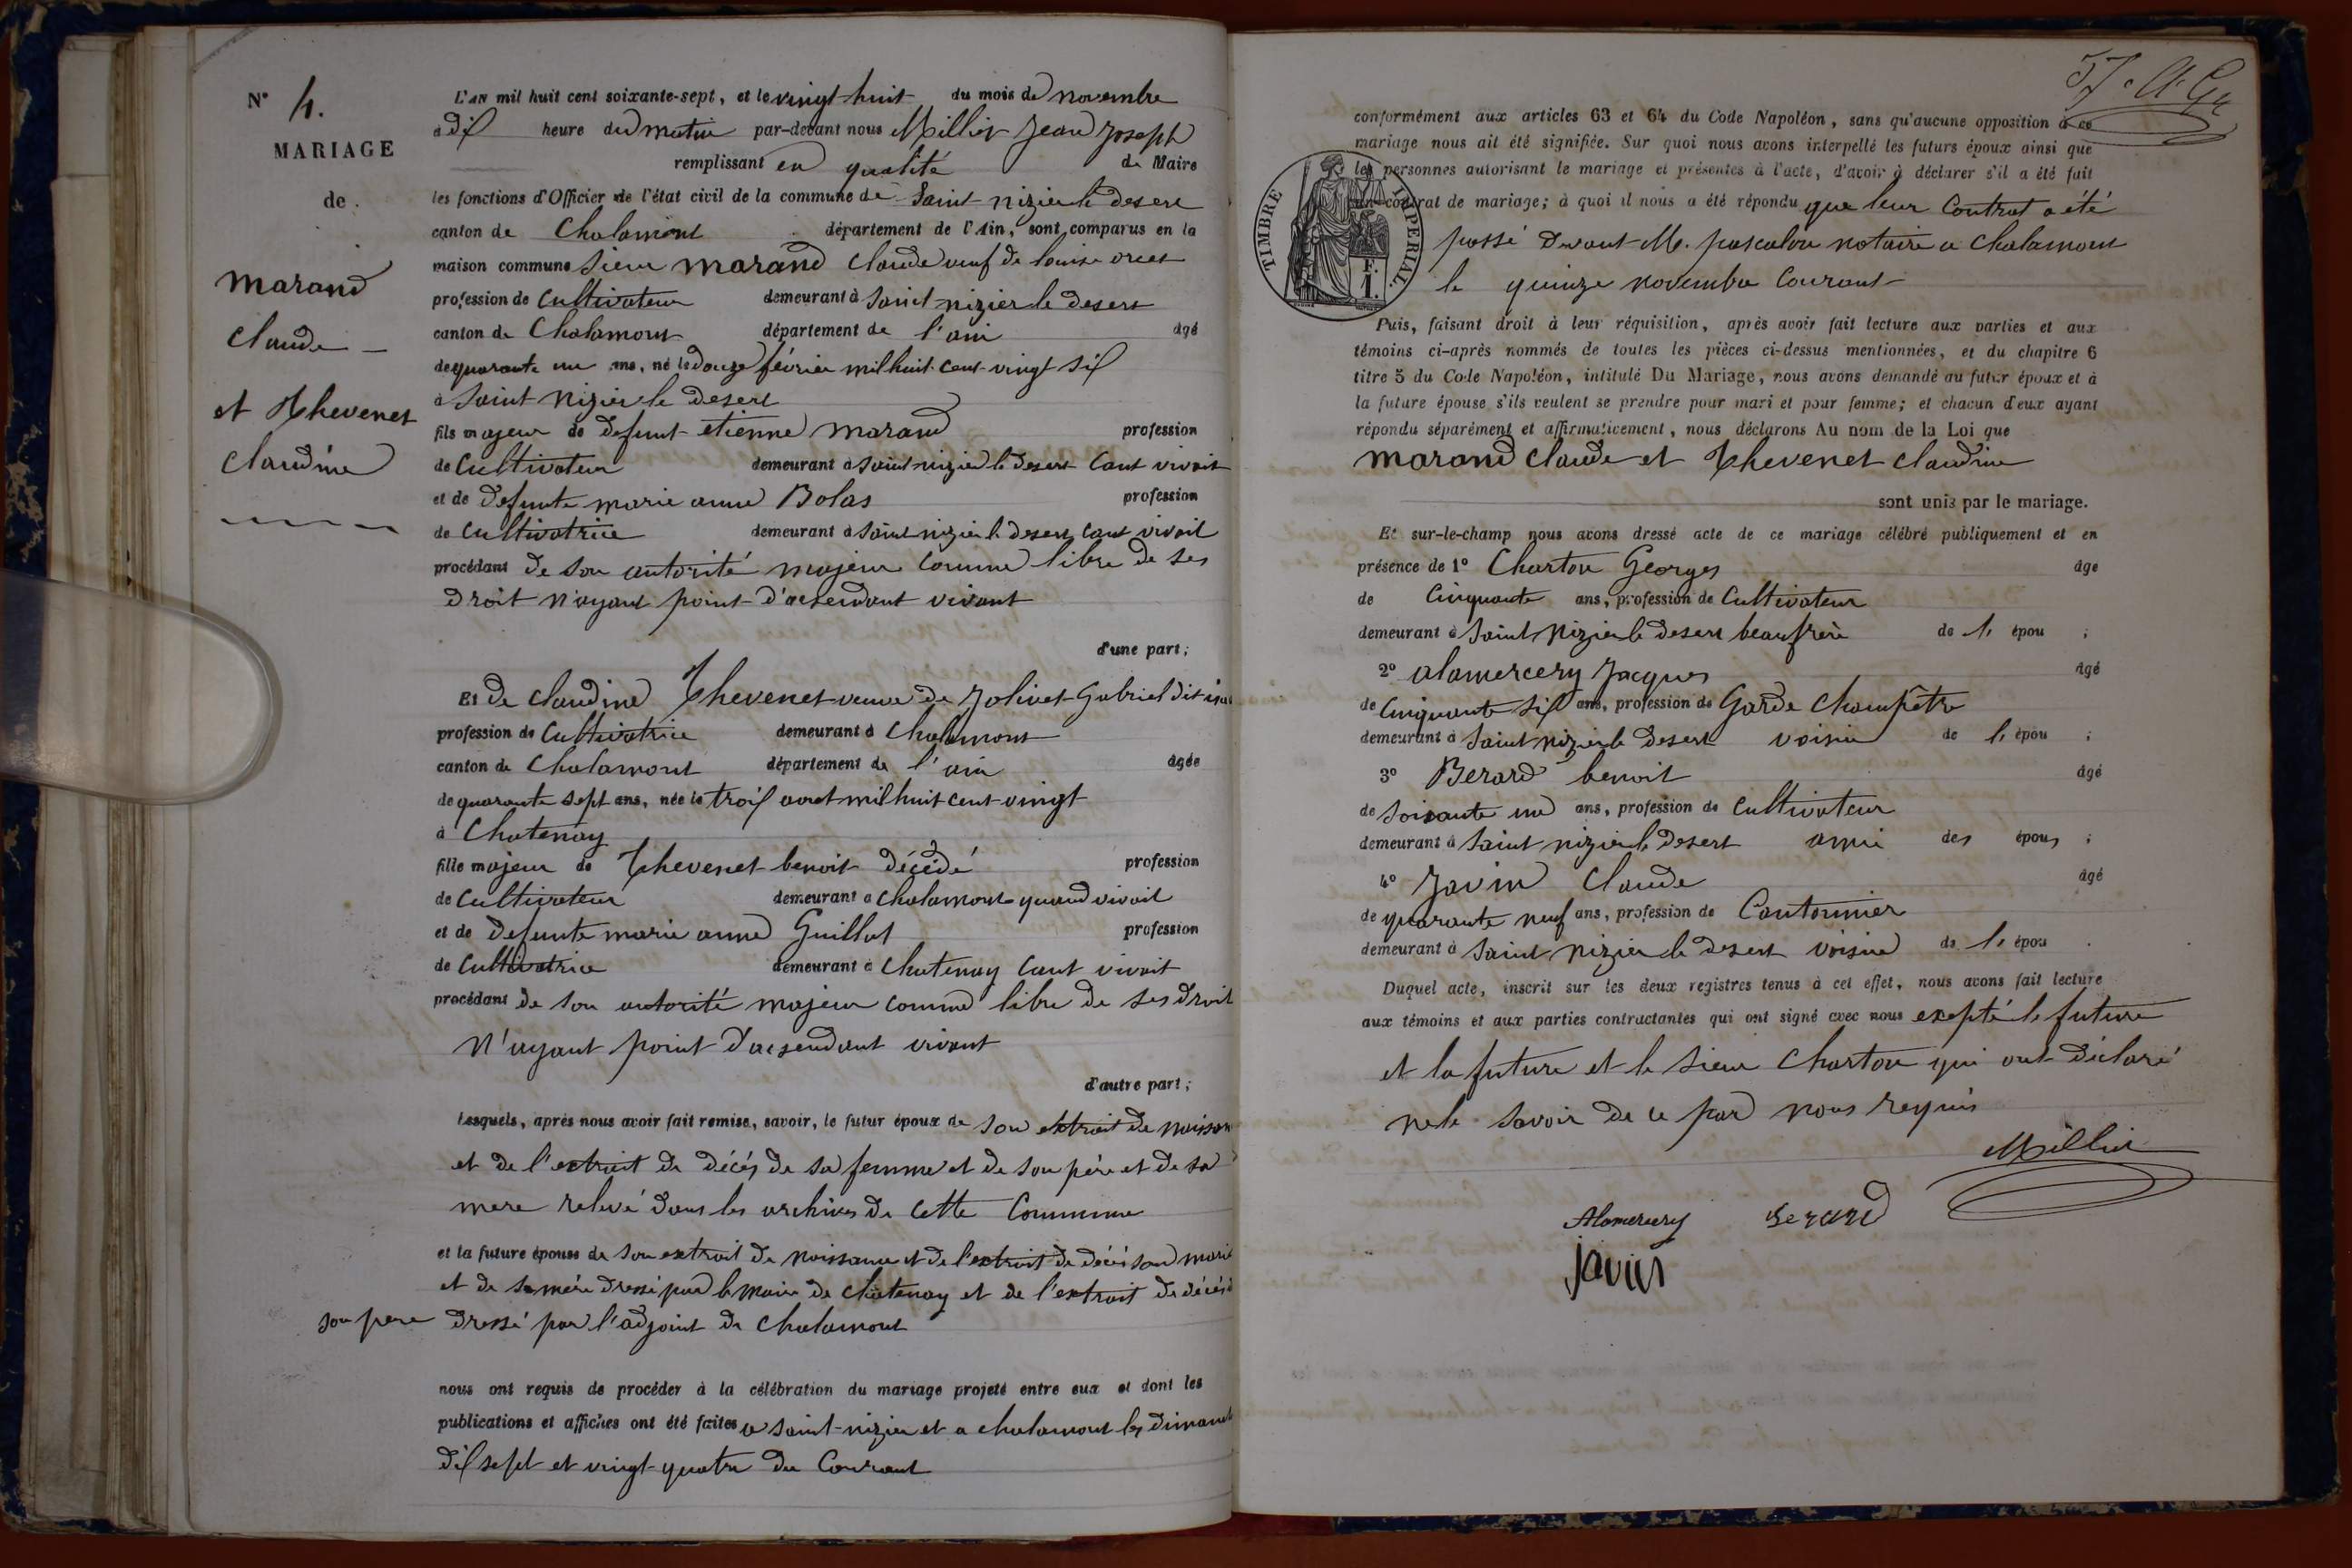 N° 4.
MARIAGE
de
marand
Claude
et Thevenet
Claudine
L'AN mil huit cent soixante-sept, et le vingt-huit du mois de novembre
à dix heure du matin par-devant nous Millier Jean Joseph
remplissant en qualité de Maire
les fonctions d'Officier de l'état civil de la commune de Saint-nizier le desert
canton de Chalamont département de l'Ain, sont comparus en la
maison commune sieur marand Claude veuf de louise
profession de Cultivateur demeurant à Saint-nizier le desert
canton de Chalamont département de l'ain âgé
de quarante un ans, né le douze février mil huit cent vingt six
à Saint nizier le desert
fils majeur de defunt etienne marand profession
de Cultivateur demeurant à saint nizier le desert cant vivait
et de defunte marie anne Bolas profession
de Cultivatrice demeurant à saint nizier le desert cant vivait
procédant de son autorité majeur comme libre de ses
droit n'ayant point d'acsendant vivant
d'une part;
Et de Claudine Thevenet veuve de Jolivet Gabriel dit
profession de Cultivatrice demeurant à Chalamont
canton de Chalamont département de l'ain âgée
de quarante sept ans, née le troix avril mil huit cent vingt
à Chatenay
fille majeur de Thevenet benoit décédé profession
de Cultivateur demeurant a Chalamont quand vivait
et de defunte marie anne Guillot profession
de Cultivatrice demeurant à Chatenay cant vivait
procédant de son autorité majeur comme libre de ses droit
N'ayant point d'acsendant vivant
d'autre part;
Lesquels, après nous avoir fait remise, savoir, le futur époux de son extrait de naissan
et de l'extrait de décés de sa femme et de son père et de sa
mere relevé dans les archives de Cette Commune
et la future épouse de son extrait de naissance et de l'extrait de décés son marie
et de sa mère dressé par le maire de Chatenay et de l'extrait de décés d
son pere dressé par l'adjoint de Chalamont
nous ont requis de procéder à la célébration du mariage projeté entre eux et dont les
publications et affiches ont été faites a saint-nizier et a chalamont les dimanch
dix sept et vingt-quatre du Courant
conformément aux articles 63 et 64 du Code Napoléon, sans qu'aucune opposition à ce
mariage nous ait été signifiée. Sur quoi nous avons interpellé les futurs époux ainsi que
les personnes autorisant le mariage et présentes à l'acte, d'avoir à déclarer s'il a été fait
un contrat de mariage; à quoi il nous a été répondu que leur Contrat a été
passé devant M. pascalon notaire a Chalamont
le quinze novembre Courant
TIMBRE IMPERIAL
F.
1.
Puis, faisant droit à leur réquisition, après avoir fait lecture aux parties et aux
témoins ci-après nommés de toutes les pièces ci-dessus mentionnées, et du chapitre 6
titre 5 du Code Napoléon, intitulé Du Mariage, nous avons demandé au futur époux et à
la future épouse s'ils veulent se prendre pour mari et pour femme; et chacun d'eux ayant
répondu séparément et affirmativement, nous déclarons Au nom de la Loi que
marand Claude et Thevenet Claudine
sont unis par le mariage.
Et sur-le-champ nous avons dressé acte de ce mariage célébré publiquement et en
présence de 1° Charton Georges âge
de Cinquante ans, profession de Cultivateur
demeurant à Saint nizier le desert beaufrère de l' épou ;
2° alamercery Jacques âgé
de Cinquante six ans, profession de Garde Champêtre
demeurant à Saint nizier le desert voisin de l' épou ;
3° Berard benoit âgé
de soixante un ans, profession de Cultivateur
demeurant à Saint nizier le desert ami des épous ;
4° Javin Claude âgé
de quarante neuf ans, profession de Cantonnier
demeurant à Saint nizier le desert voisin de l' épou .
Duquel acte, inscrit sur les deux registres tenus à cet effet, nous avons fait lecture
aux témoins et aux parties contractantes qui ont signé avec nous exepté le future
et la future et le sieur Charton qui ont déclaré
ne le savoir de ce par nous requis
Millier
Alamercery Berard
javin